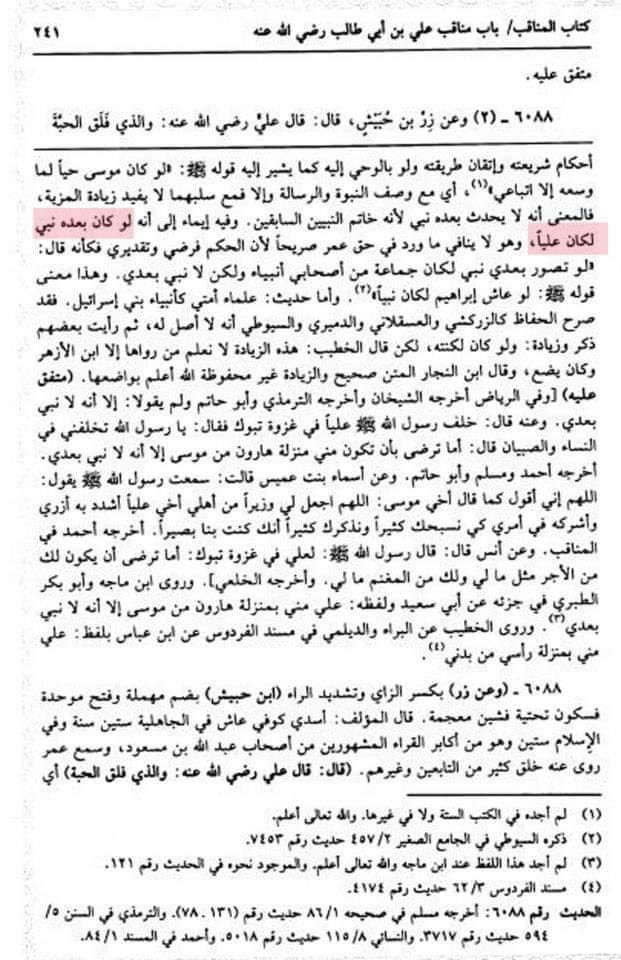 كتاب المناقب/ باب مناقب علي بن أبي طالب رضي الله عنه ٢٤١
متفق عليه.
٦٠٨٨ ـ (٢) وعن زِرِّ بن حُبَيْشٍ، قال: قال عليٌّ رضي الله عنه: والذي فَلَق الحبَّة
أحكام شريعته وإتقان طريقته ولو بالوحي إليه كما يشير إليه قوله ﷺ: «لو كان موسى حياً لما
وسعه إلا اتباعي»(١)، أي مع وصف النبوة والرسالة وإلا فمع سلبهما لا يفيد زيادة المزية،
فالمعنى أنه لا يحدث بعده نبي لأنه خاتم النبيين السابقين. وفيه إيماء إلى أنه لو كان بعده نبي
لكان علياً، وهو لا ينافي ما ورد في حق عمر صريحاً لأن الحكم فرضي وتقديري فكأنه قال:
«لو تصور بعدي نبي لكان جماعة من أصحابي أنبياء ولكن لا نبي بعدي. وهذا معنى
قوله ﷺ: لو عاش إبراهيم لكان نبياً»(٢). وأما حديث: علماء أمتي كأنبياء بني إسرائيل. فقد
صرح الحفاظ كالزركشي والعسقلاني والدميري والسيوطي أنه لا أصل له، ثم رأيت بعضهم
ذكر وزيادة: ولو كان لكنته، لكن قال الخطيب: هذه الزيادة لا نعلم من رواها إلا ابن الأزهر
وكان يضع، وقال ابن النجار المتن صحيح والزيادة غير محفوظة الله أعلم بواضعها. (متفق
عليه) [وفي الرياض أخرجه الشيخان وأخرجه الترمذي وأبو حاتم ولم يقولا: إلا أنه لا نبي
بعدي. وعنه قال: خلف رسول الله ﷺ علياً في غزوة تبوك فقال: يا رسول الله تخلفني في
النساء والصبيان قال: أما ترضى بأن تكون مني منزلة هارون من موسى إلا أنه لا نبي بعدي.
أخرجه أحمد ومسلم وأبو حاتم. وعن أسماء بنت عميس قالت: سمعت رسول الله ﷺ يقول:
اللهم إني أقول كما قال أخي موسى: اللهم اجعل لي وزيراً من أهلي أخي علياً أشدد به أزري
وأشركه في أمري كي نسبحك كثيراً ونذكرك كثيراً أنك كنت بنا بصيراً. أخرجه أحمد في
المناقب. وعن أنس قال: قال رسول الله ﷺ: لعلي في غزوة تبوك: أما ترضى أن يكون لك
من الأجر مثل ما لي ولك من المغنم ما لي. وأخرجه الخلعي]. وروى ابن ماجه وأبو بكر
الطبري في جزئه عن أبي سعيد ولفظه: علي مني بمنزلة هارون من موسى إلا أنه لا نبي
بعدي(٣). وروى الخطيب عن البراء والديلمي في مسند الفردوس عن ابن عباس بلفظ: علي
مني بمنزلة رأسي من بدني(٤).
٦٠٨٨ ـ (وعن زر) بكسر الزاي وتشديد الراء (ابن حبيش) بضم مهملة وفتح موحدة
فسكون تحتية فشين معجمة. قال المؤلف: أسدي كوفي عاش في الجاهلية ستين سنة وفي
الإسلام ستين وهو من أكابر القراء المشهورين من أصحاب عبد الله بن مسعود، وسمع عمر
روى عنه خلق كثير من التابعين وغيرهم. (قال: قال علي رضي الله عنه: والذي فلق الحبة) أي
(١) لم أجده في الكتب الستة ولا في غيرها. والله تعالى أعلم.
(٢) ذكره السيوطي في الجامع الصغير ٤٥٧/٢ حديث رقم ٧٤٥٣.
(٣) لم أجد هذا اللفظ عند ابن ماجه والله تعالى أعلم. والموجود نحوه في الحديث رقم ١٢١.
(٤) مسند الفردوس ٦٢/٣ حديث رقم ٤١٧٤.
الحديث رقم ٦٠٨٨: أخرجه مسلم في صحيحه ٨٦/١ حديث رقم (١٣١. ٧٨). والترمذي في السنن ٥/
٥٩٤ حديث رقم ٣٧١٧. والنسائي ١١٥/٨ حديث رقم ٥٠١٨. وأحمد في المسند ٨٤/١.